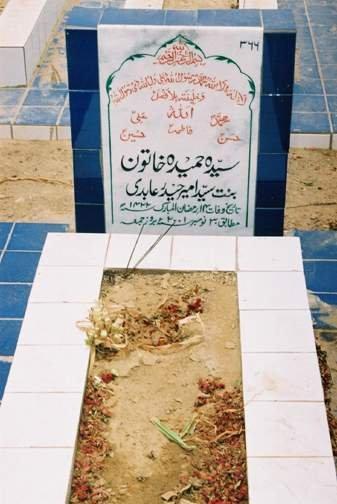 ۳۶۶
بسم اللہ الرحمن الرحیم
لا الہ الا اللہ محمد رسول اللہ علی ولی اللہ وصی رسول اللہ
و خلیفتہ بلا فصل
محمد اللہ علی
حسن فاطمہ حسین
سیدہ حمیدہ خاتون
بنت سید امیر حیدر عابدی
تاریخ وفات ۱۴ رمضان المبارک ۱۴۲۲ ھ
مطابق ۳۰ نومبر ۲۰۰۱ء بروز جمعہ